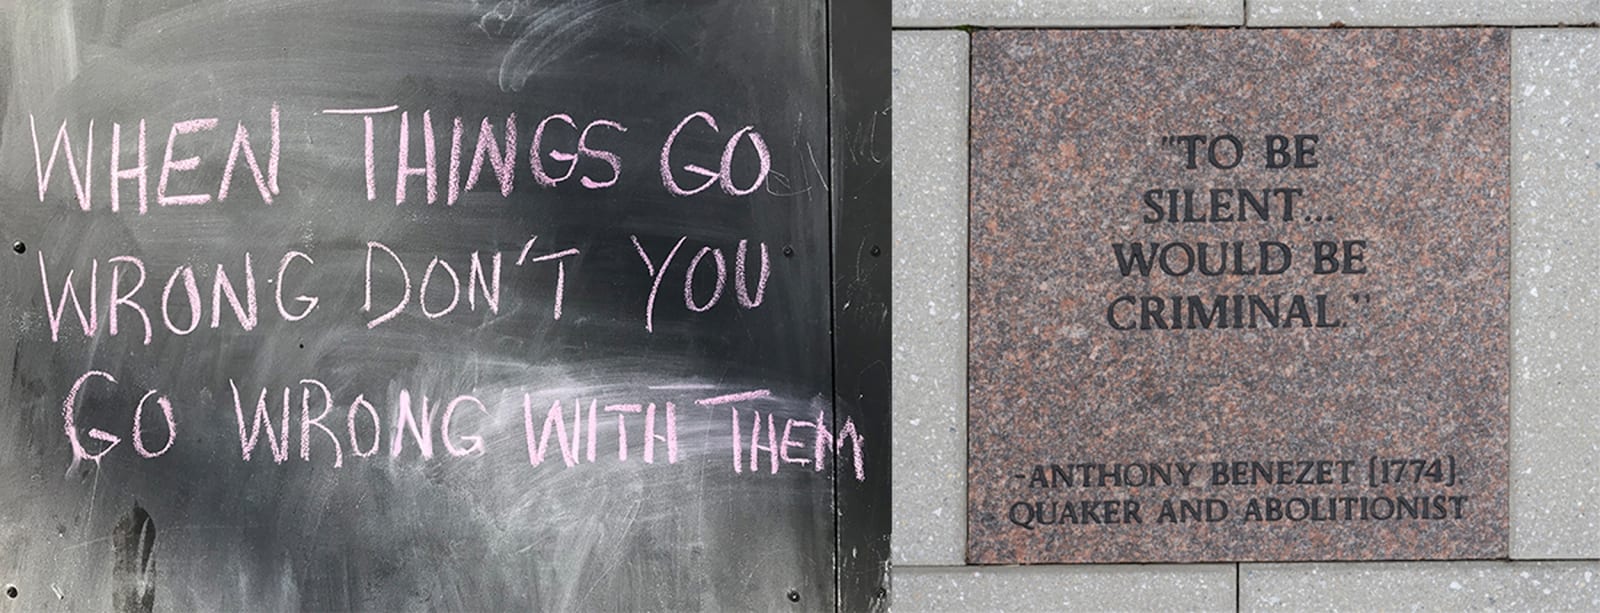 WHEN THINGS GO
WRONG DON'T YOU
GO WRONG WITH THEM
"TO BE
SILENT...
WOULD BE
CRIMINAL."
-ANTHONY BENEZET (1774),
QUAKER AND ABOLITIONIST